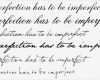 perfection has to be imperfect
perfection has to be imperfect
perfection has to be imperfect
perfection has to be imperfect
perfection has to be imperfect
perfection has to be imperfect
perfection has to be imperfect